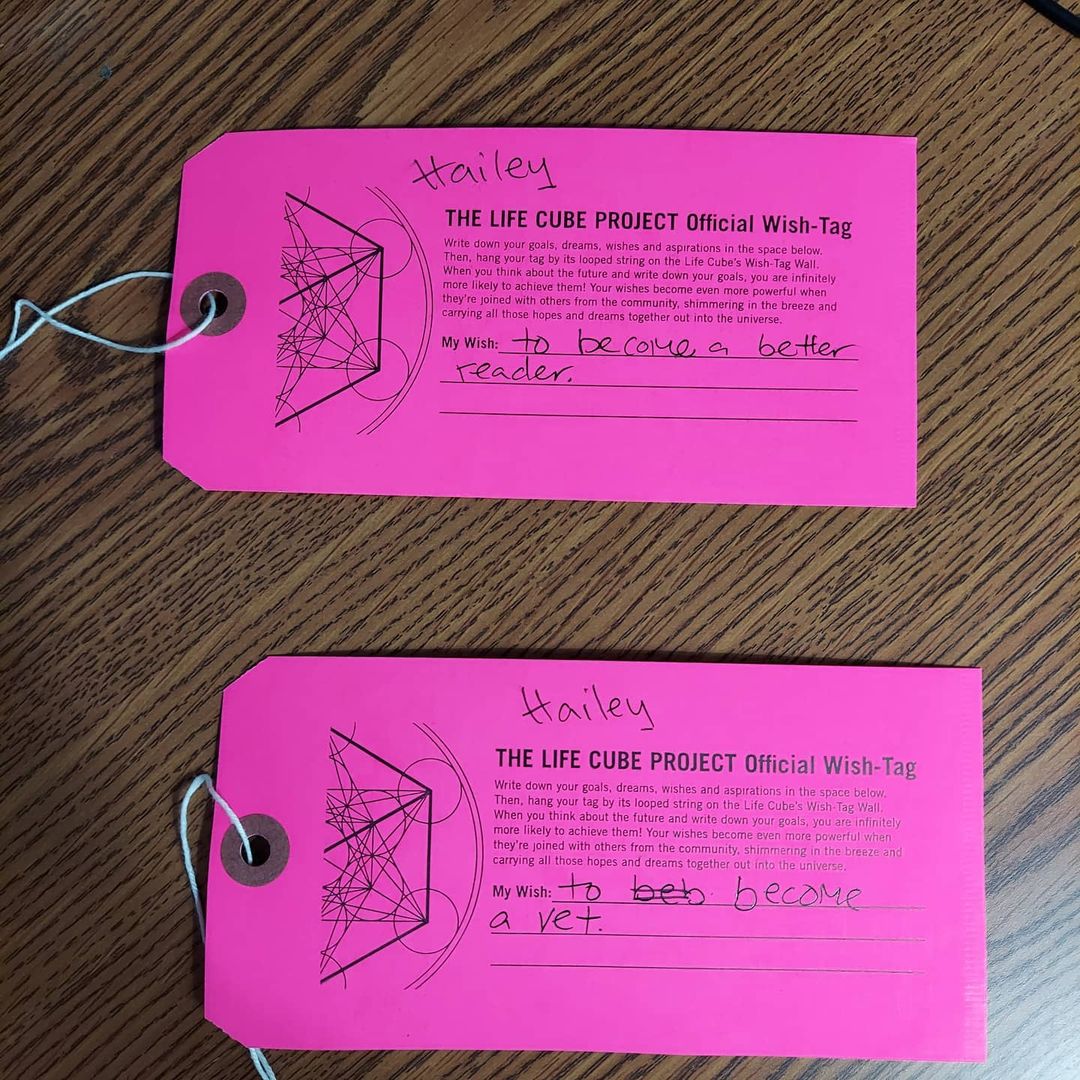 Hailey
THE LIFE CUBE PROJECT Official Wish-Tag
Write down your goals, dreams, wishes and aspirations in the space below.
Then, hang your tag by its looped string on the Life Cube's Wish-Tag Wall.
When you think about the future and write down your goals, you are infinitely
more likely to achieve them! Your wishes become even more powerful when
they're joined with others from the community, shimmering in the breeze and
carrying all those hopes and dreams together out into the universe.
My Wish: to become a better
reader.
Hailey
THE LIFE CUBE PROJECT Official Wish-Tag
Write down your goals, dreams, wishes and aspirations in the space below.
Then, hang your tag by its looped string on the Life Cube's Wish-Tag Wall.
When you think about the future and write down your goals, you are infinitely
more likely to achieve them! Your wishes become even more powerful when
they're joined with others from the community, shimmering in the breeze and
carrying all those hopes and dreams together out into the universe.
My Wish: to become
a vet.